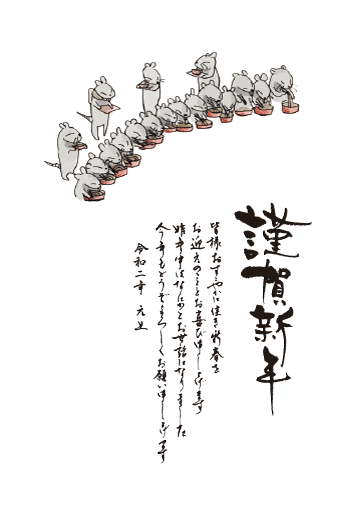 謹賀新年
皆様おすこやかに佳き新春を
お迎えのこととお喜び申し上げます
昨年中はなにかとお世話になりました
今年もどうぞよろしくお願い申し上げます
令和二年 元旦